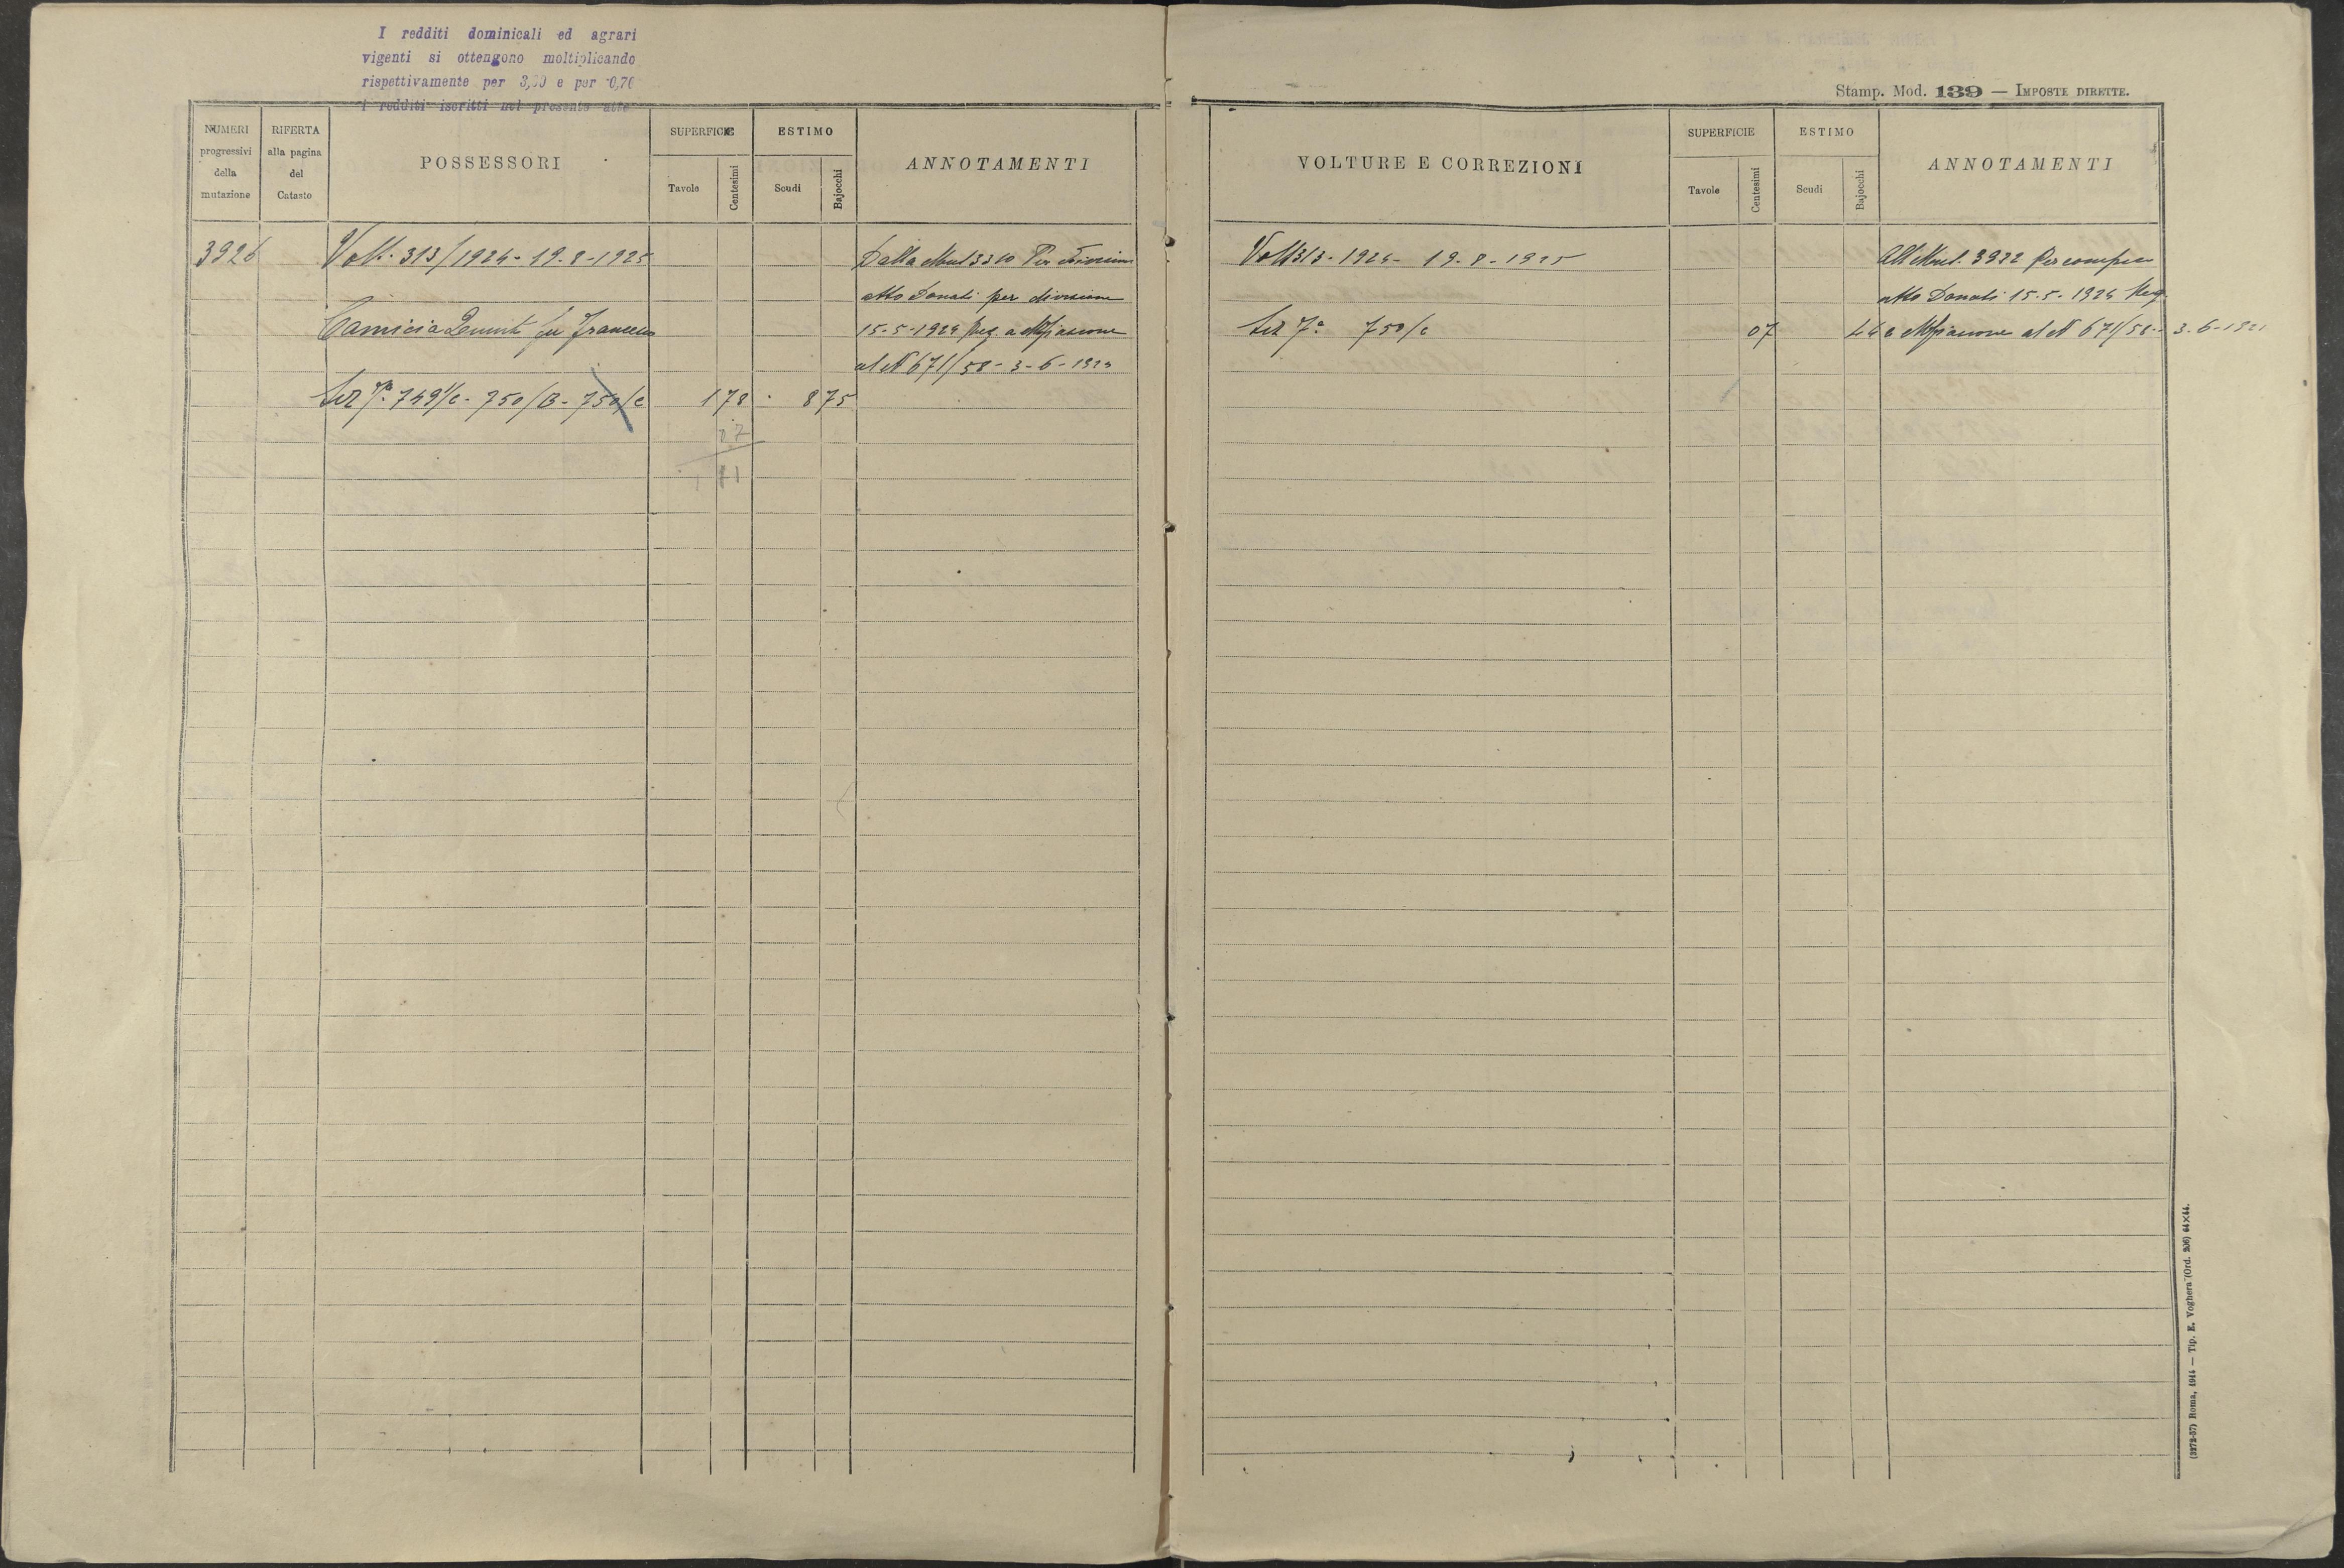 I redditi dominicali ed agrari
vigenti si ottengono moltiplicando
rispettivamente per 3,20 e per 0,70
i redditi iscritti nel presente atto
Stamp. Mod. 139 — IMPOSTE DIRETTE.
NUMERI progressivi della mutazione
RIFERTA alla pagina del Catasto
POSSESSORI
SUPERFICIE
Tavole
Centesimi
ESTIMO
Scudi
Bajocchi
ANNOTAMENTI
3926
Volt. 313/1924 - 19-8-1925
Dalla Mut 3310 Per divisione
atto Donati per divisione
Camicia fu Francesco
15-5-1924 Reg. a Mfiascone
al N 671/58 - 3-6-1924
Sez 7a 749/c - 750/B - 750/c
178
875
07
VOLTURE E CORREZIONI
SUPERFICIE
Tavole
Centesimi
ESTIMO
Scudi
Bajocchi
ANNOTAMENTI
Volt 313-1924 - 19-8-1925
All Mut. 3922 Per
atto Donati 15-5-1924 Reg
Sez 7a 750/c
07
44
a Mfiascone al N 671/58 - 3-6-1924
(3272-57) Roma, 1914 — Tip. E. Voghera (Ord. 206) 64×44.